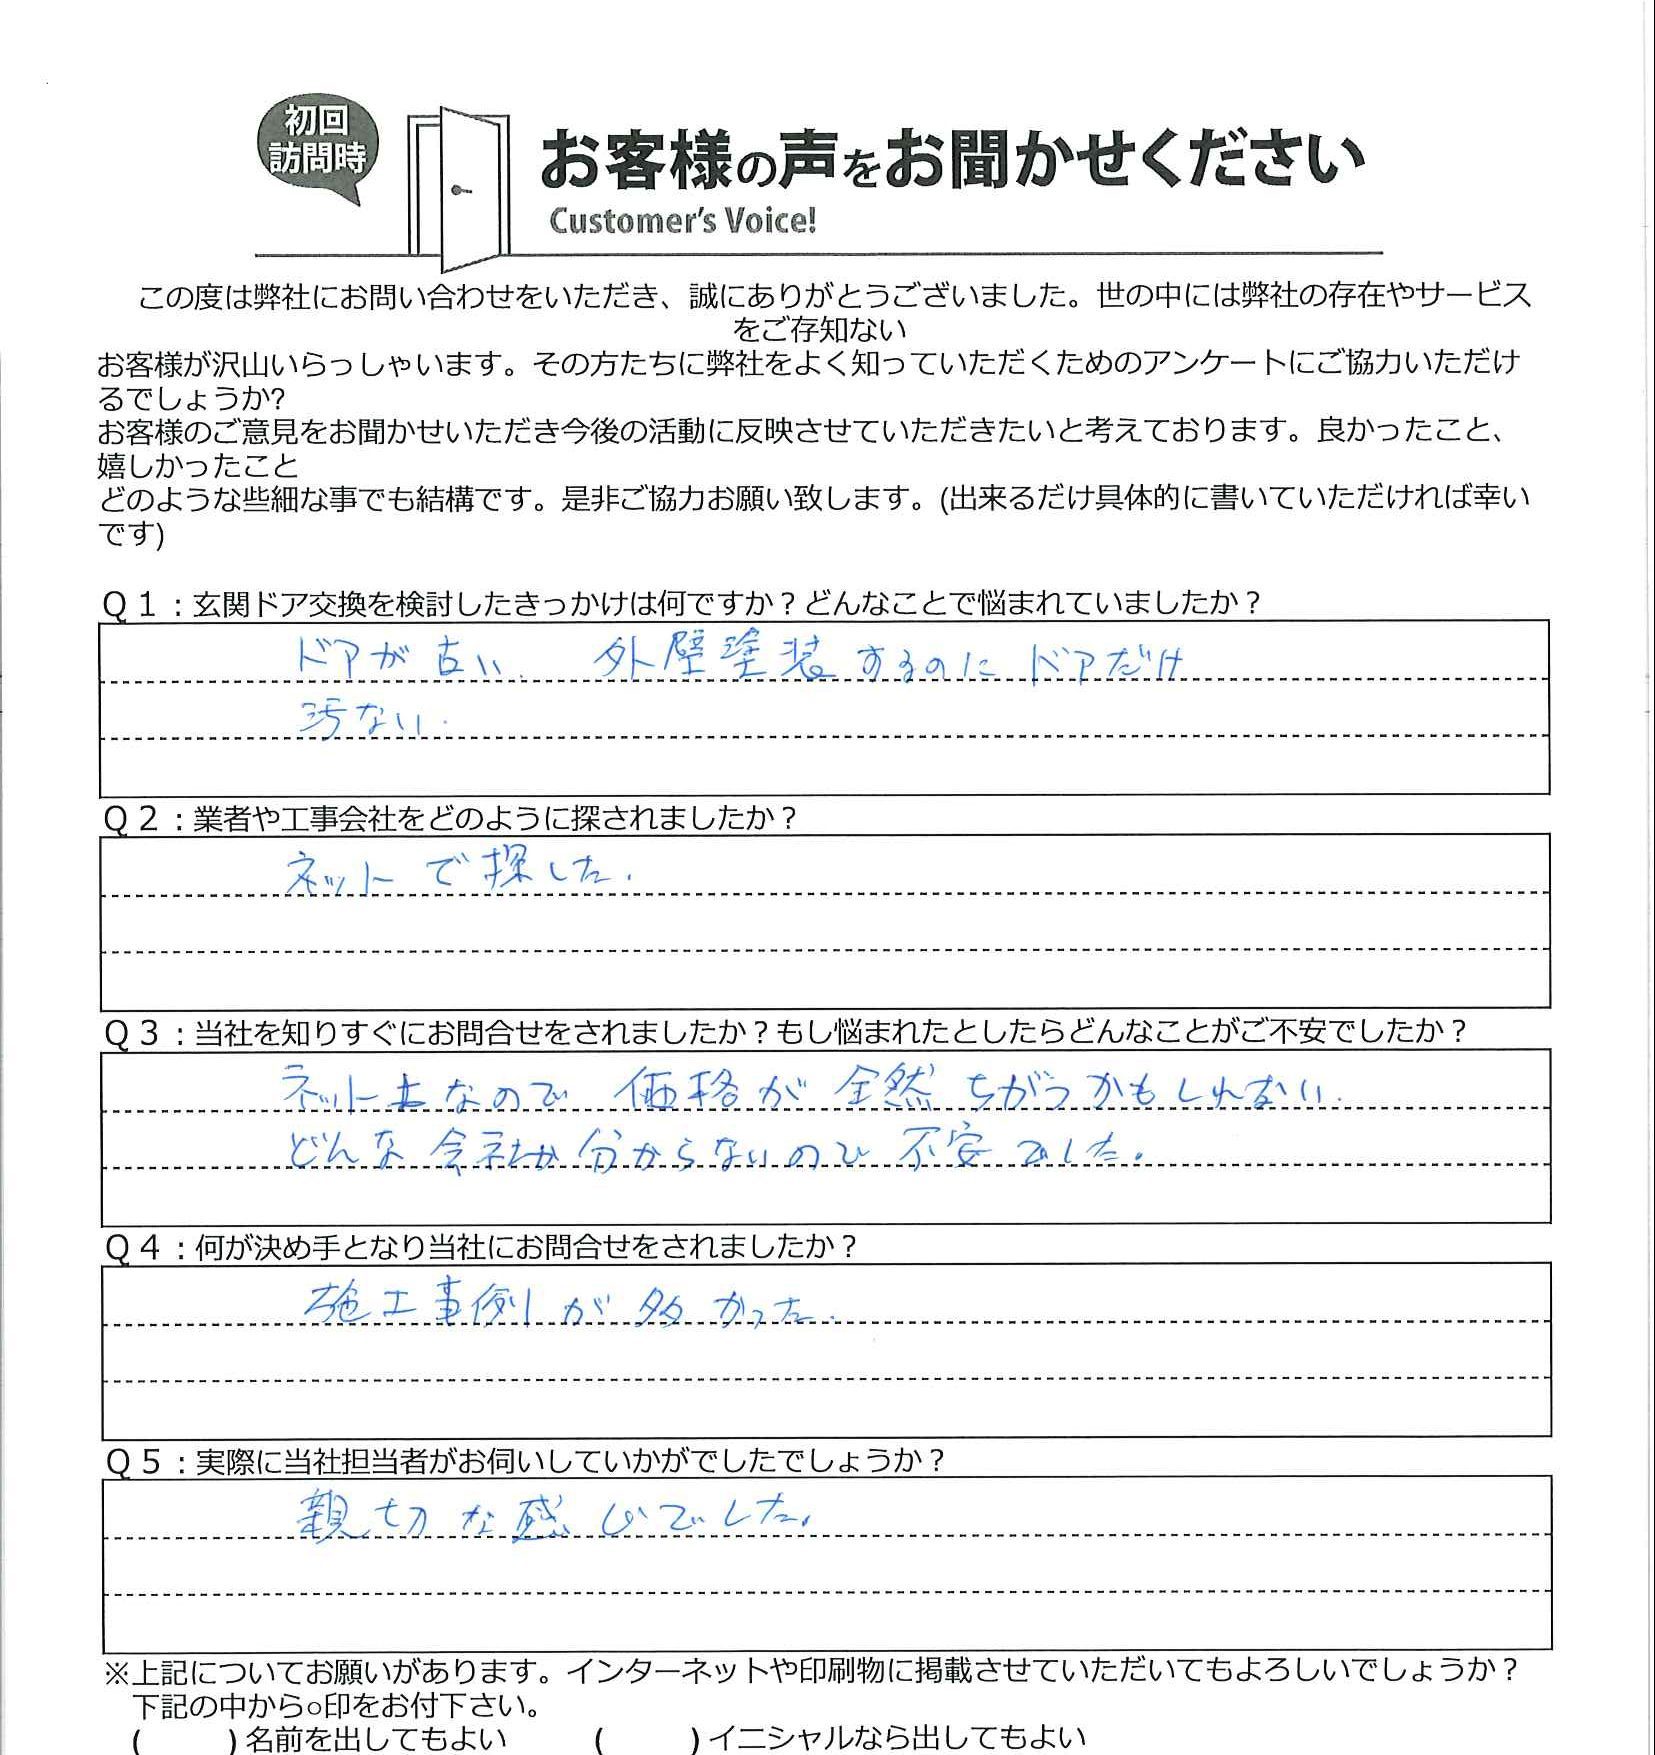 初回
訪問時
お客様の声をお聞かせください
Customer's Voice!
この度は弊社にお問い合わせをいただき、誠にありがとうございました。世の中には弊社の存在やサービス
をご存知ない
お客様が沢山いらっしゃいます。その方たちに弊社をよく知っていただくためのアンケートにご協力いただけ
るでしょうか?
お客様のご意見をお聞かせいただき今後の活動に反映させていただきたいと考えております。良かったこと、
嬉しかったこと
どのような些細な事でも結構です。是非ご協力お願い致します。(出来るだけ具体的に書いていただければ幸い
です)
Q1：玄関ドア交換を検討したきっかけは何ですか？どんなことで悩まれていましたか？
ドアが古い. 外壁塗装するのにドアだけ
汚ない.
Q2：業者や工事会社をどのように探されましたか？
ネットで探した.
Q3：当社を知りすぐにお問合せをされましたか？もし悩まれたとしたらどんなことがご不安でしたか？
ネット上なので 価格が全然ちがうかもしれない.
どんな会社か分からないので不安でした.
Q4：何が決め手となり当社にお問合せをされましたか？
施工事例が多かった.
Q5：実際に当社担当者がお伺いしていかがでしたでしょうか？
親切な感じでした.
※上記についてお願いがあります。インターネットや印刷物に掲載させていただいてもよろしいでしょうか？
下記の中から○印をお付下さい。
( )名前を出してもよい ( )イニシャルなら出してもよい